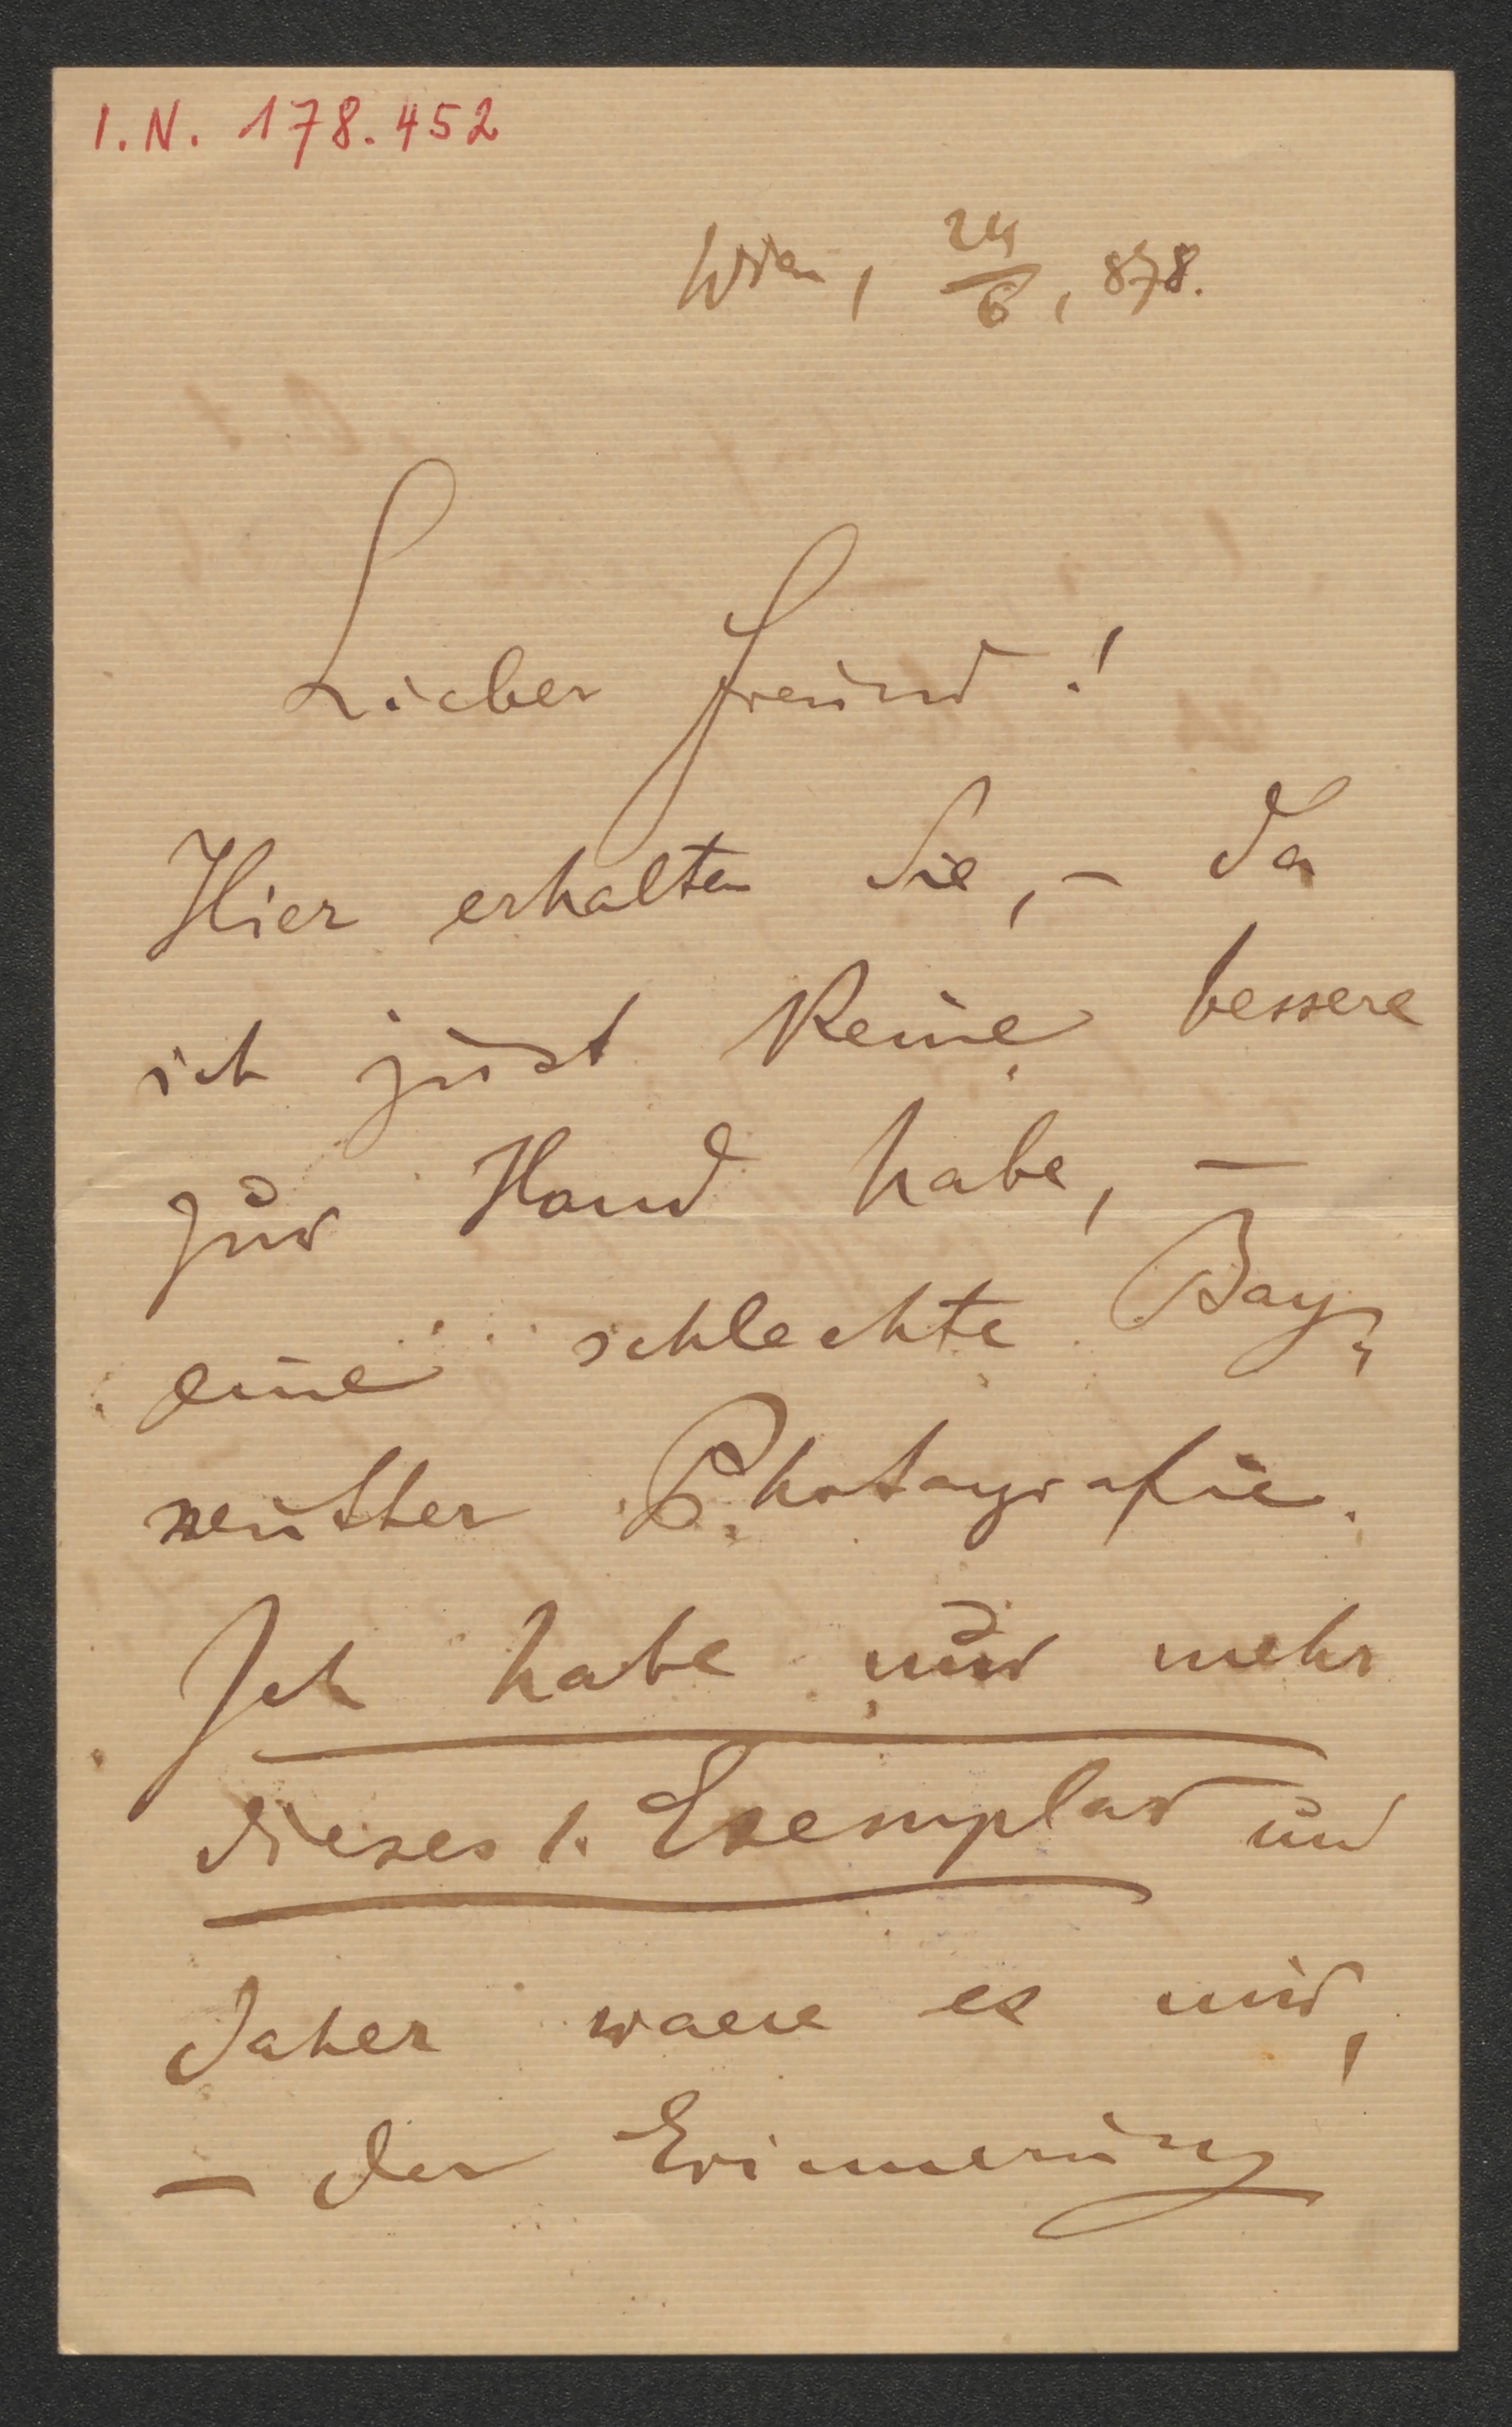 I. N. 178.452
Wien, 24/6, 878.
Lieber Freund!
Hier erhalten Sie, – da
ich just keine bessere
zur Hand habe, –
eine schlechte Bay-
reuther Photografie.
Ich habe nur mehr
dieses 1. Exemplar und
daher waere es mir,
– der Erinnerung